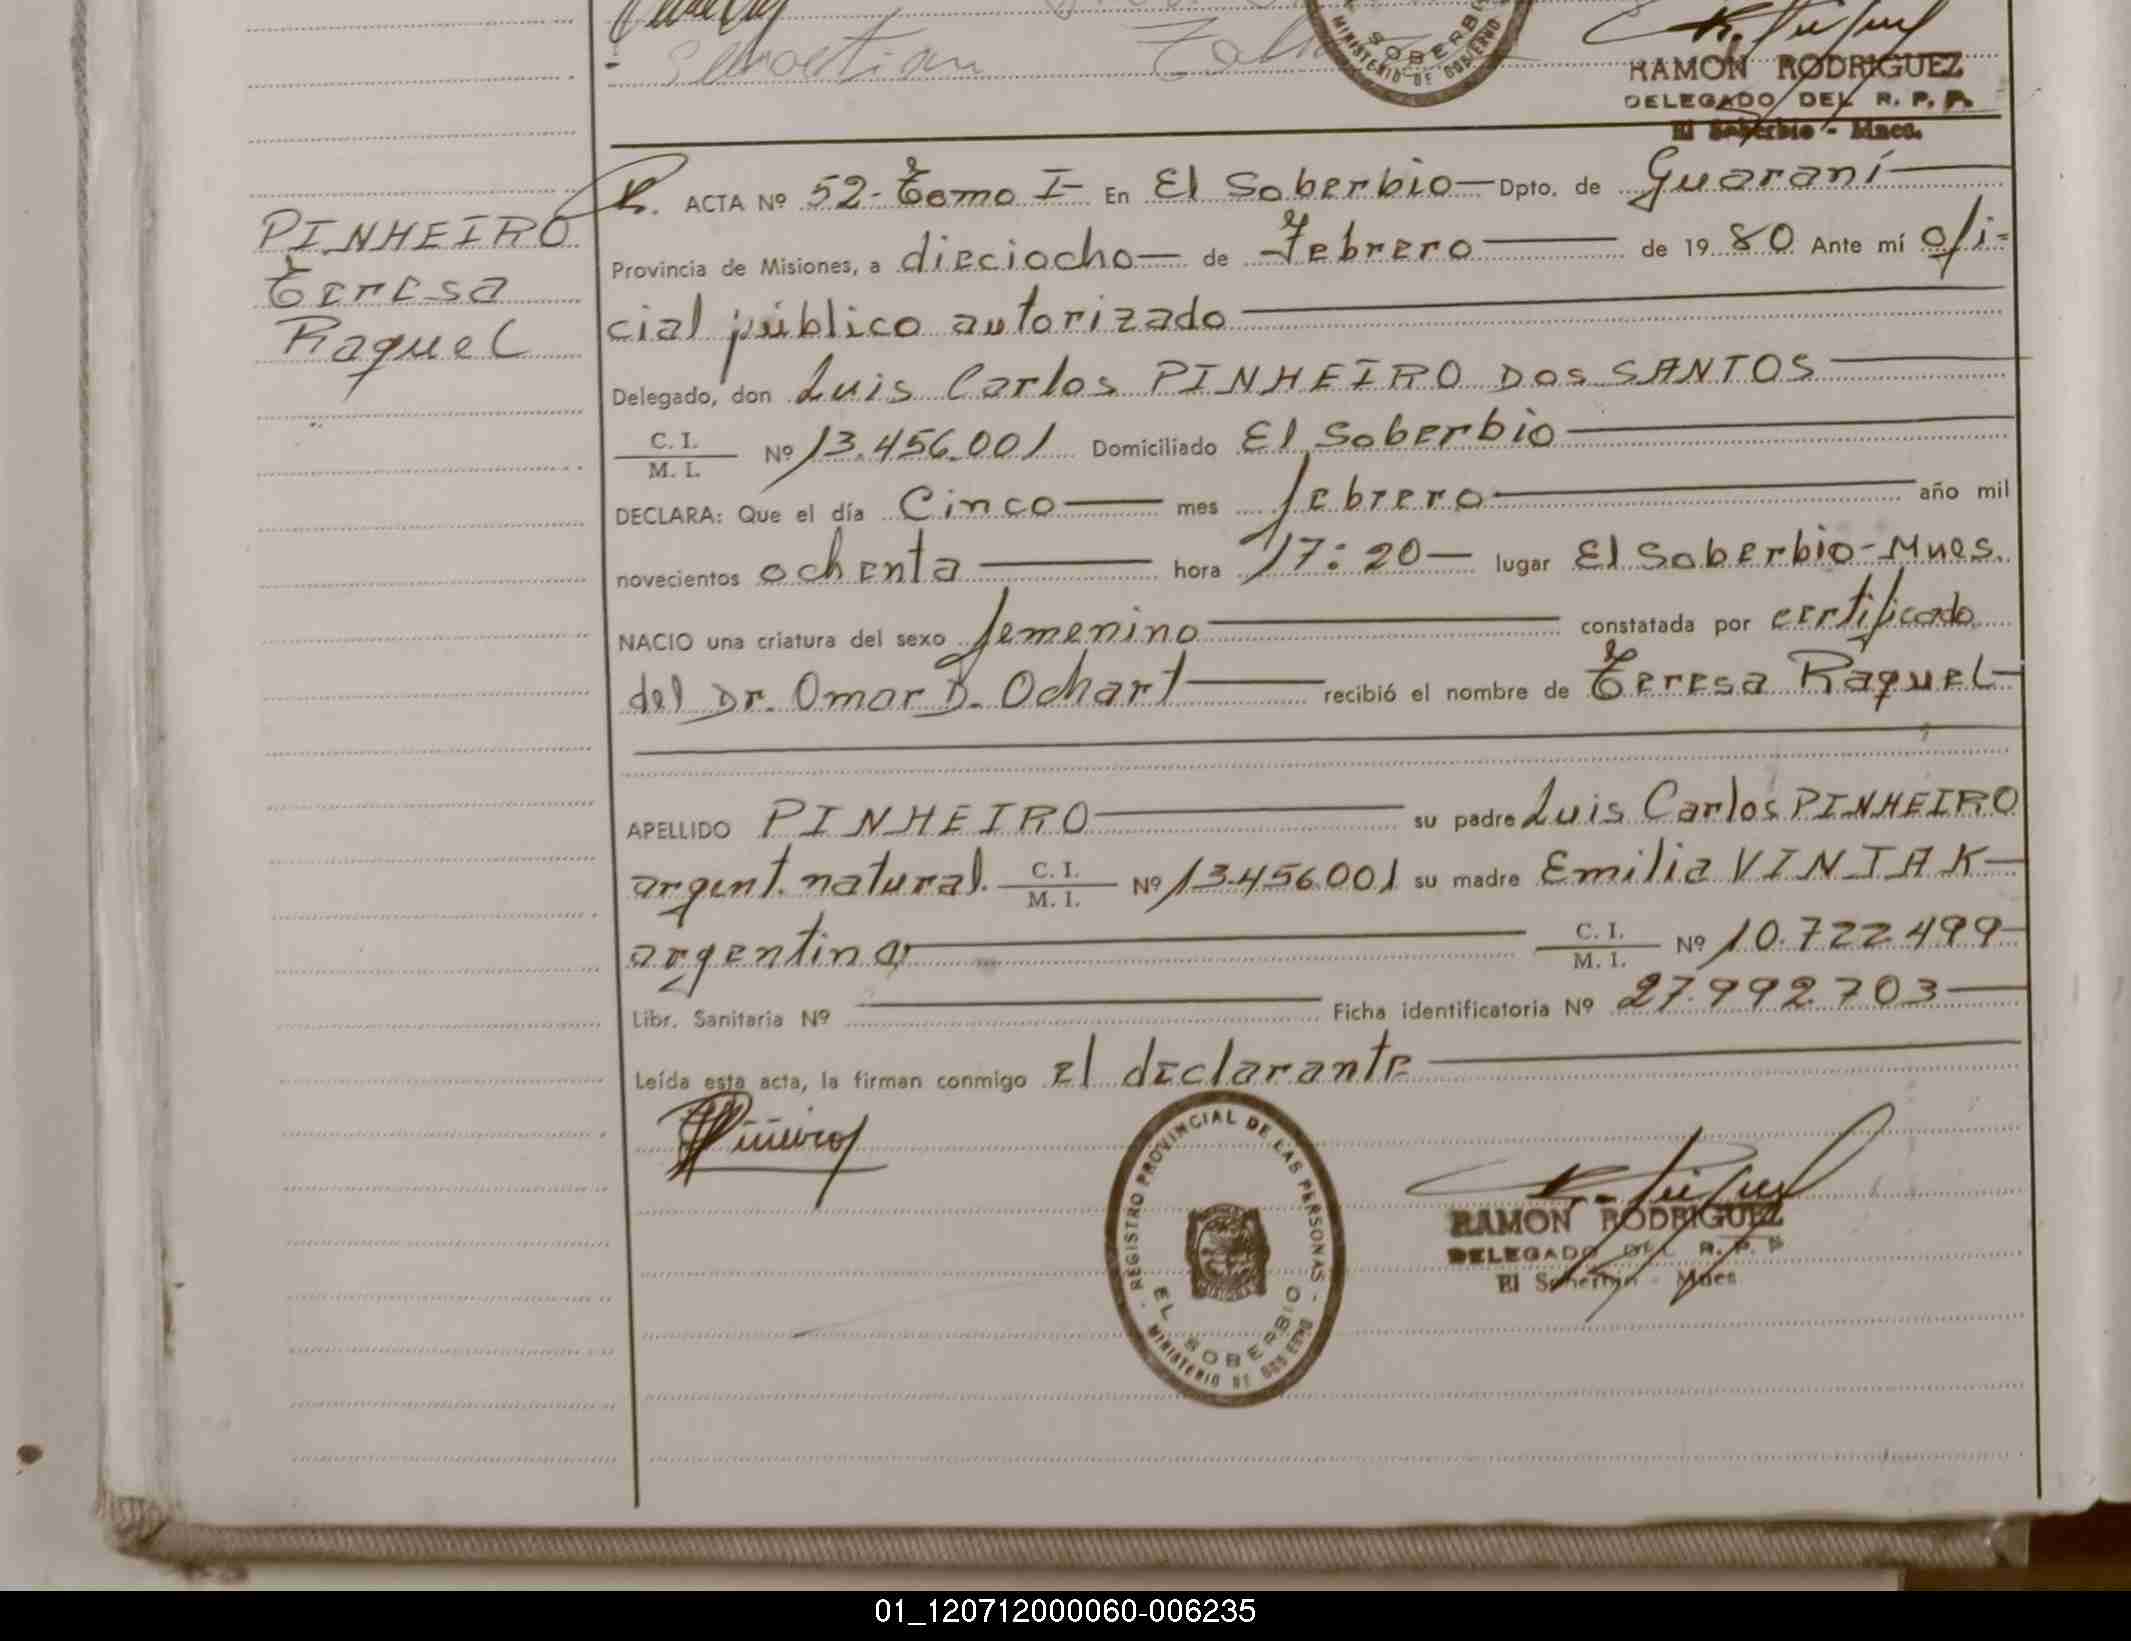 Sebastian
SOBERBIO
MINISTERIO DE GOBIERNO
RAMON RODRIGUEZ
DELEGADO DEL R. P. P.
El Soberbio - Mnes.
R. ACTA Nº 52- Tomo I- En El Soberbio Dpto. de Guaraní
PINHEIRO
Teresa
Raquel
Provincia de Misiones, a dieciocho de Febrero de 19 80 Ante mí ofi-
cial público autorizado
Delegado, don Luis Carlos PINHEIRO DOS SANTOS
C. I.
M. I. Nº 13.456.001 Domiciliado El Soberbio
DECLARA: Que el día Cinco mes febrero año mil
novecientos ochenta hora 17:20 lugar El Soberbio-Mnes.
NACIO una criatura del sexo femenino constatada por certificado
del Dr. Omar D. Ochart recibió el nombre de Teresa Raquel
APELLIDO PINHEIRO su padre Luis Carlos PINHEIRO
argent. natural. C. I. M. I. Nº 13.456.001 su madre Emilia VINIAK
argentina C. I. M. I. Nº 10.722.499
Libr. Sanitaria Nº Ficha identificatoria Nº 27.992.703
Leída esta acta, la firman conmigo el declarante
REGISTRO PROVINCIAL DE LAS PERSONAS
EL SOBERBIO
MINISTERIO DE GOBIERNO
RAMON RODRIGUEZ
DELEGADO DEL R. P. P.
El Soberbio - Mnes
01_120712000060-006235